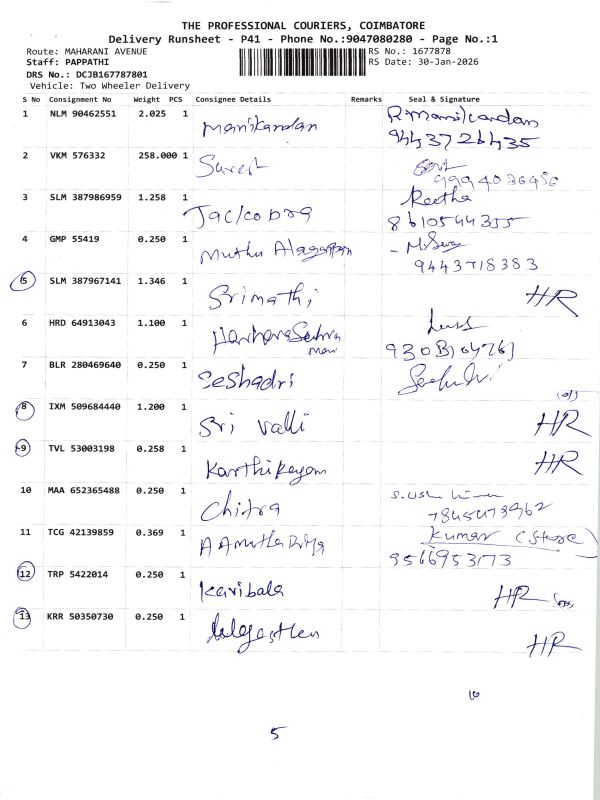 THE PROFESSIONAL COURIERS, COIMBATORE
Delivery Runsheet - P41 - Phone No.:9047080280 - Page No.:1
Route: MAHARANI AVENUE RS No.: 1677878
Staff: PAPPATHI RS Date: 30-Jan-2026
DRS No.: DCJB167787801
Vehicle: Two Wheeler Delivery
S No Consignment No Weight PCS Consignee Details Remarks Seal & Signature
1 NLM 90462551 2.025 1 Manikandan R.Manikandan
9443726435
2 VKM 576332 258.000 1 Suresh
9994036456
3 SLM 387986959 1.258 1 Jac/cobra Reetha
8610544355
4 GMP 55419 0.250 1 Muthu Alagappan
9443718383
5 SLM 387967141 1.346 1 Srimathi HR
6 HRD 64913043 1.100 1
7 BLR 280469640 0.250 1 Seshadri
8 IXM 509684440 1.200 1 Sri valli HR
9 TVL 53003198 0.258 1 Karthikeyan HR
10 MAA 652365488 0.250 1 Chitra S.
11 TCG 42139859 0.369 1 Kumar (Store)
9566953173
12 TRP 5422014 0.250 1 Karibala HR
13 KRR 50350730 0.250 1 HR
10
5